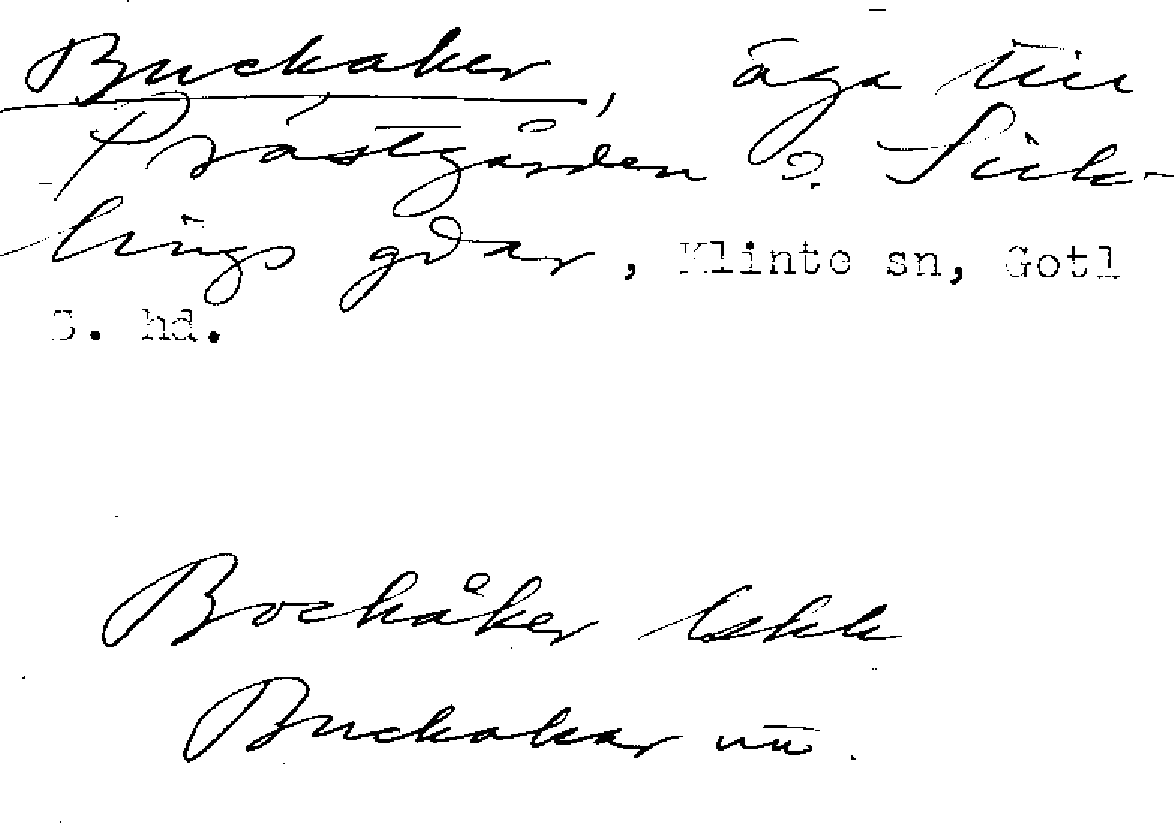 Buckaker, äga till
Prästgården o. Sick-
lings gdar, Klinte sn, Gotl
S. hd.
Bockåker lskk
Buckakar uu.